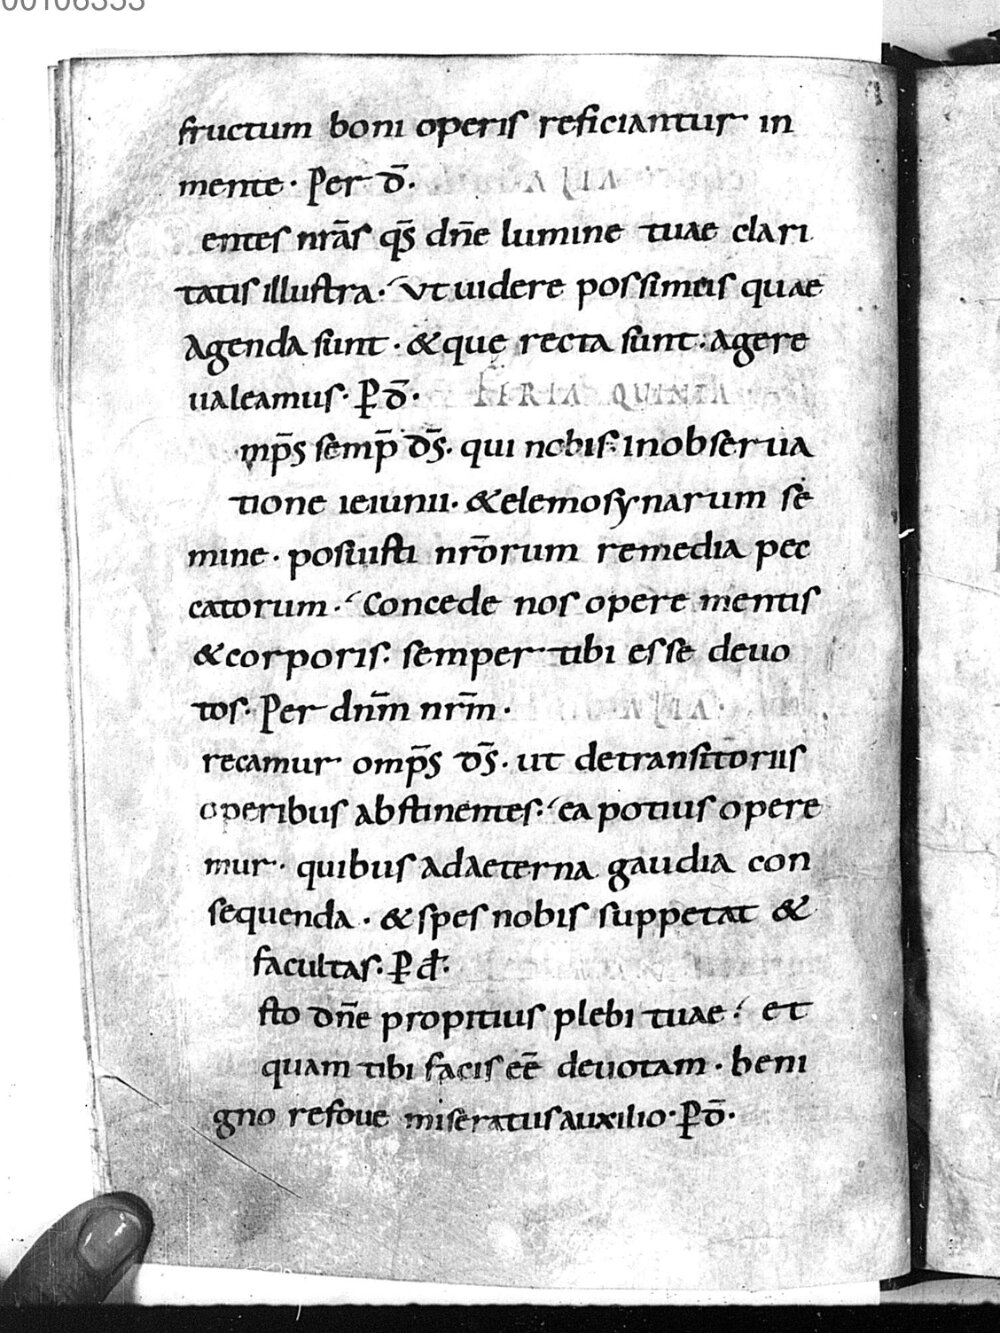 00106353
fructum boni operis reficiantur in
mente · Per d̄.
entes nr̄as qs̄ dn̄e lumine tuae clari
tatis illustra · Ut uidere possimus quae
agenda sunt · & quę recta sunt · agere
ualeamus · P d̄ ·
mps̄ semp̄ ds̄ · qui nobis inobserua
tione ieiunii · & elemosynarum se
mine · posuisti nr̄orum remedia pec
catorum · Concede nos opere mentis
& corporis · semper tibi esse deuo
tos · Per dnm̄ nrm̄ ·
recamur omps̄ ds̄ · ut detransitoriis
operibus abstinentes · ea potius opere
mur · quibus adaeterna gaudia con
sequenda · & spes nobis suppetat &
facultas · P d ·
FERIA QUINTA
sto dn̄e propitius plebi tuae · et
quam tibi facis eē deuotam · beni
gno refoue miseratus auxilio · P d̄ ·